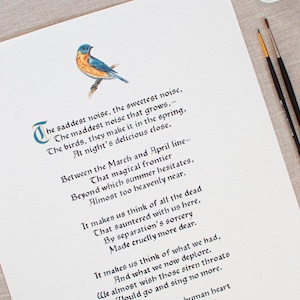 The saddest noise, the sweetest noise,
The maddest noise that grows,—
The birds, they make it in the spring,
At night's delicious close.
Between the March and April line—
That magical frontier
Beyond which summer hesitates,
Almost too heavenly near.
It makes us think of all the dead
That sauntered with us here,
By separation's sorcery
Made cruelly more dear.
It makes us think of what we had,
And what we now deplore.
We almost wish those siren throats
Would go and sing no more.
human heart